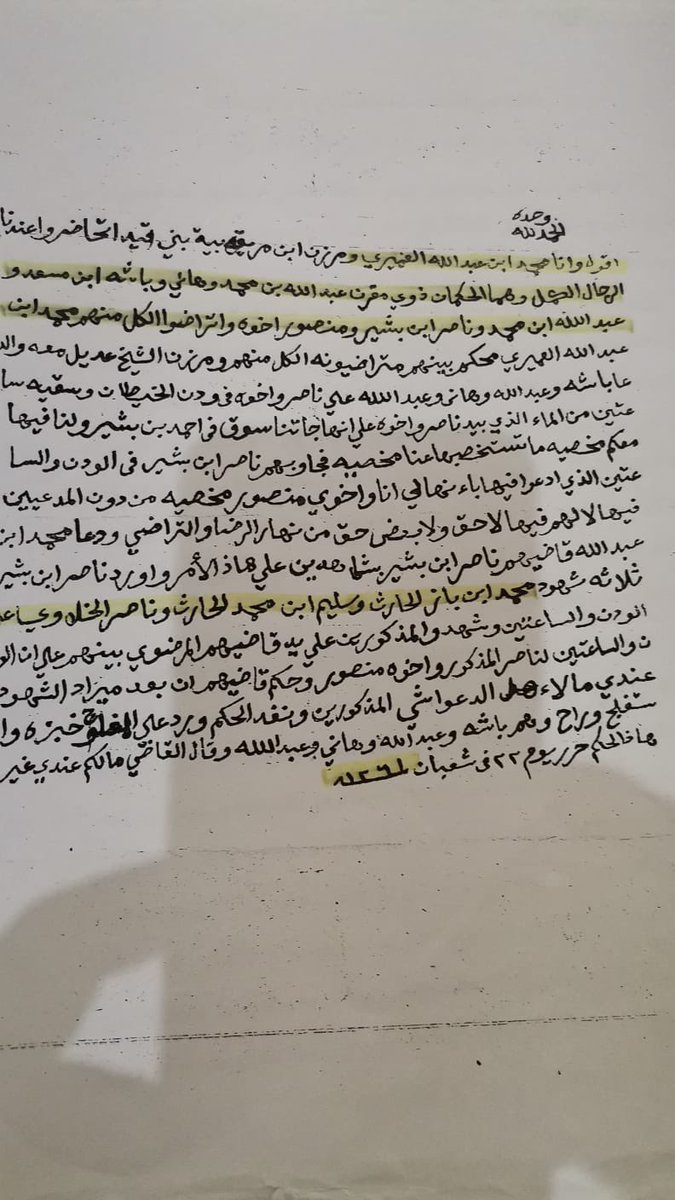 الحمد لله وحده
اقول وانا محمد ابن عبد الله العميري ومرزن ابن مريع بية بني اتحاضر واعندنا
الرجال وهما الحكمان ذوي مقرن عبد الله بن محمد وهاني وباشه ابن مسعد و
عبد الله ابن محمد وناصر ابن بشير ومنصور اخوه واتراضوا الكل منهم محمد ابن
عبد الله العميري محكم بينهم متراضيونه الكل منهم ومرزن الشيخ عديل معه
عا باشه وعبد الله وهاني وعبد الله علي ناصر واخوه في ودن الخيطان وسقيه سا
عتين من الماء الذي بيد ناصر واخوه علي انها جاتنا سوق في احمد بن بشير ولنا فيها
معكم مخصيه ما تستخصبها عنا مخصيه فجاوبهم ناصر ابن بشير في الودن والسا
عتين الذي ادعوا فيها باء نهالي انا واخوي منصور مخصيه من دون المدعيين
فيها لا لهم فيها لا حق ولا بعض حق من نهار الرضا والتراضي ودعا محمد ابن
عبد الله قاضيهم ناصر ابن بشير بشاهدين علي هاذ الأمر واورد ناصر ابن بشير
ثلاثه شهود محمد ابن باز الحارث وسليم ابن محمد الحارث وناصر
الودن والساعتين وشهدو المذكورين علي يد قاضيهم المرضوي بينهم علي ان الو
ن والساعتين لناصر المذكور واخوه منصور وحكم قاضيهم ان بعد ميراد الشهود
عندي مالاء هل الدعوا شي المذكورين ونفد الحكم ورد علي المفلوج خبزه وا
ستفلج وراح وهم باشه وعبد الله وهاني وعبد الله وقال القاضي مالكم عندي غير
هاذا الحكم حرر يوم ٢٢ في شعبان ١٢٦١